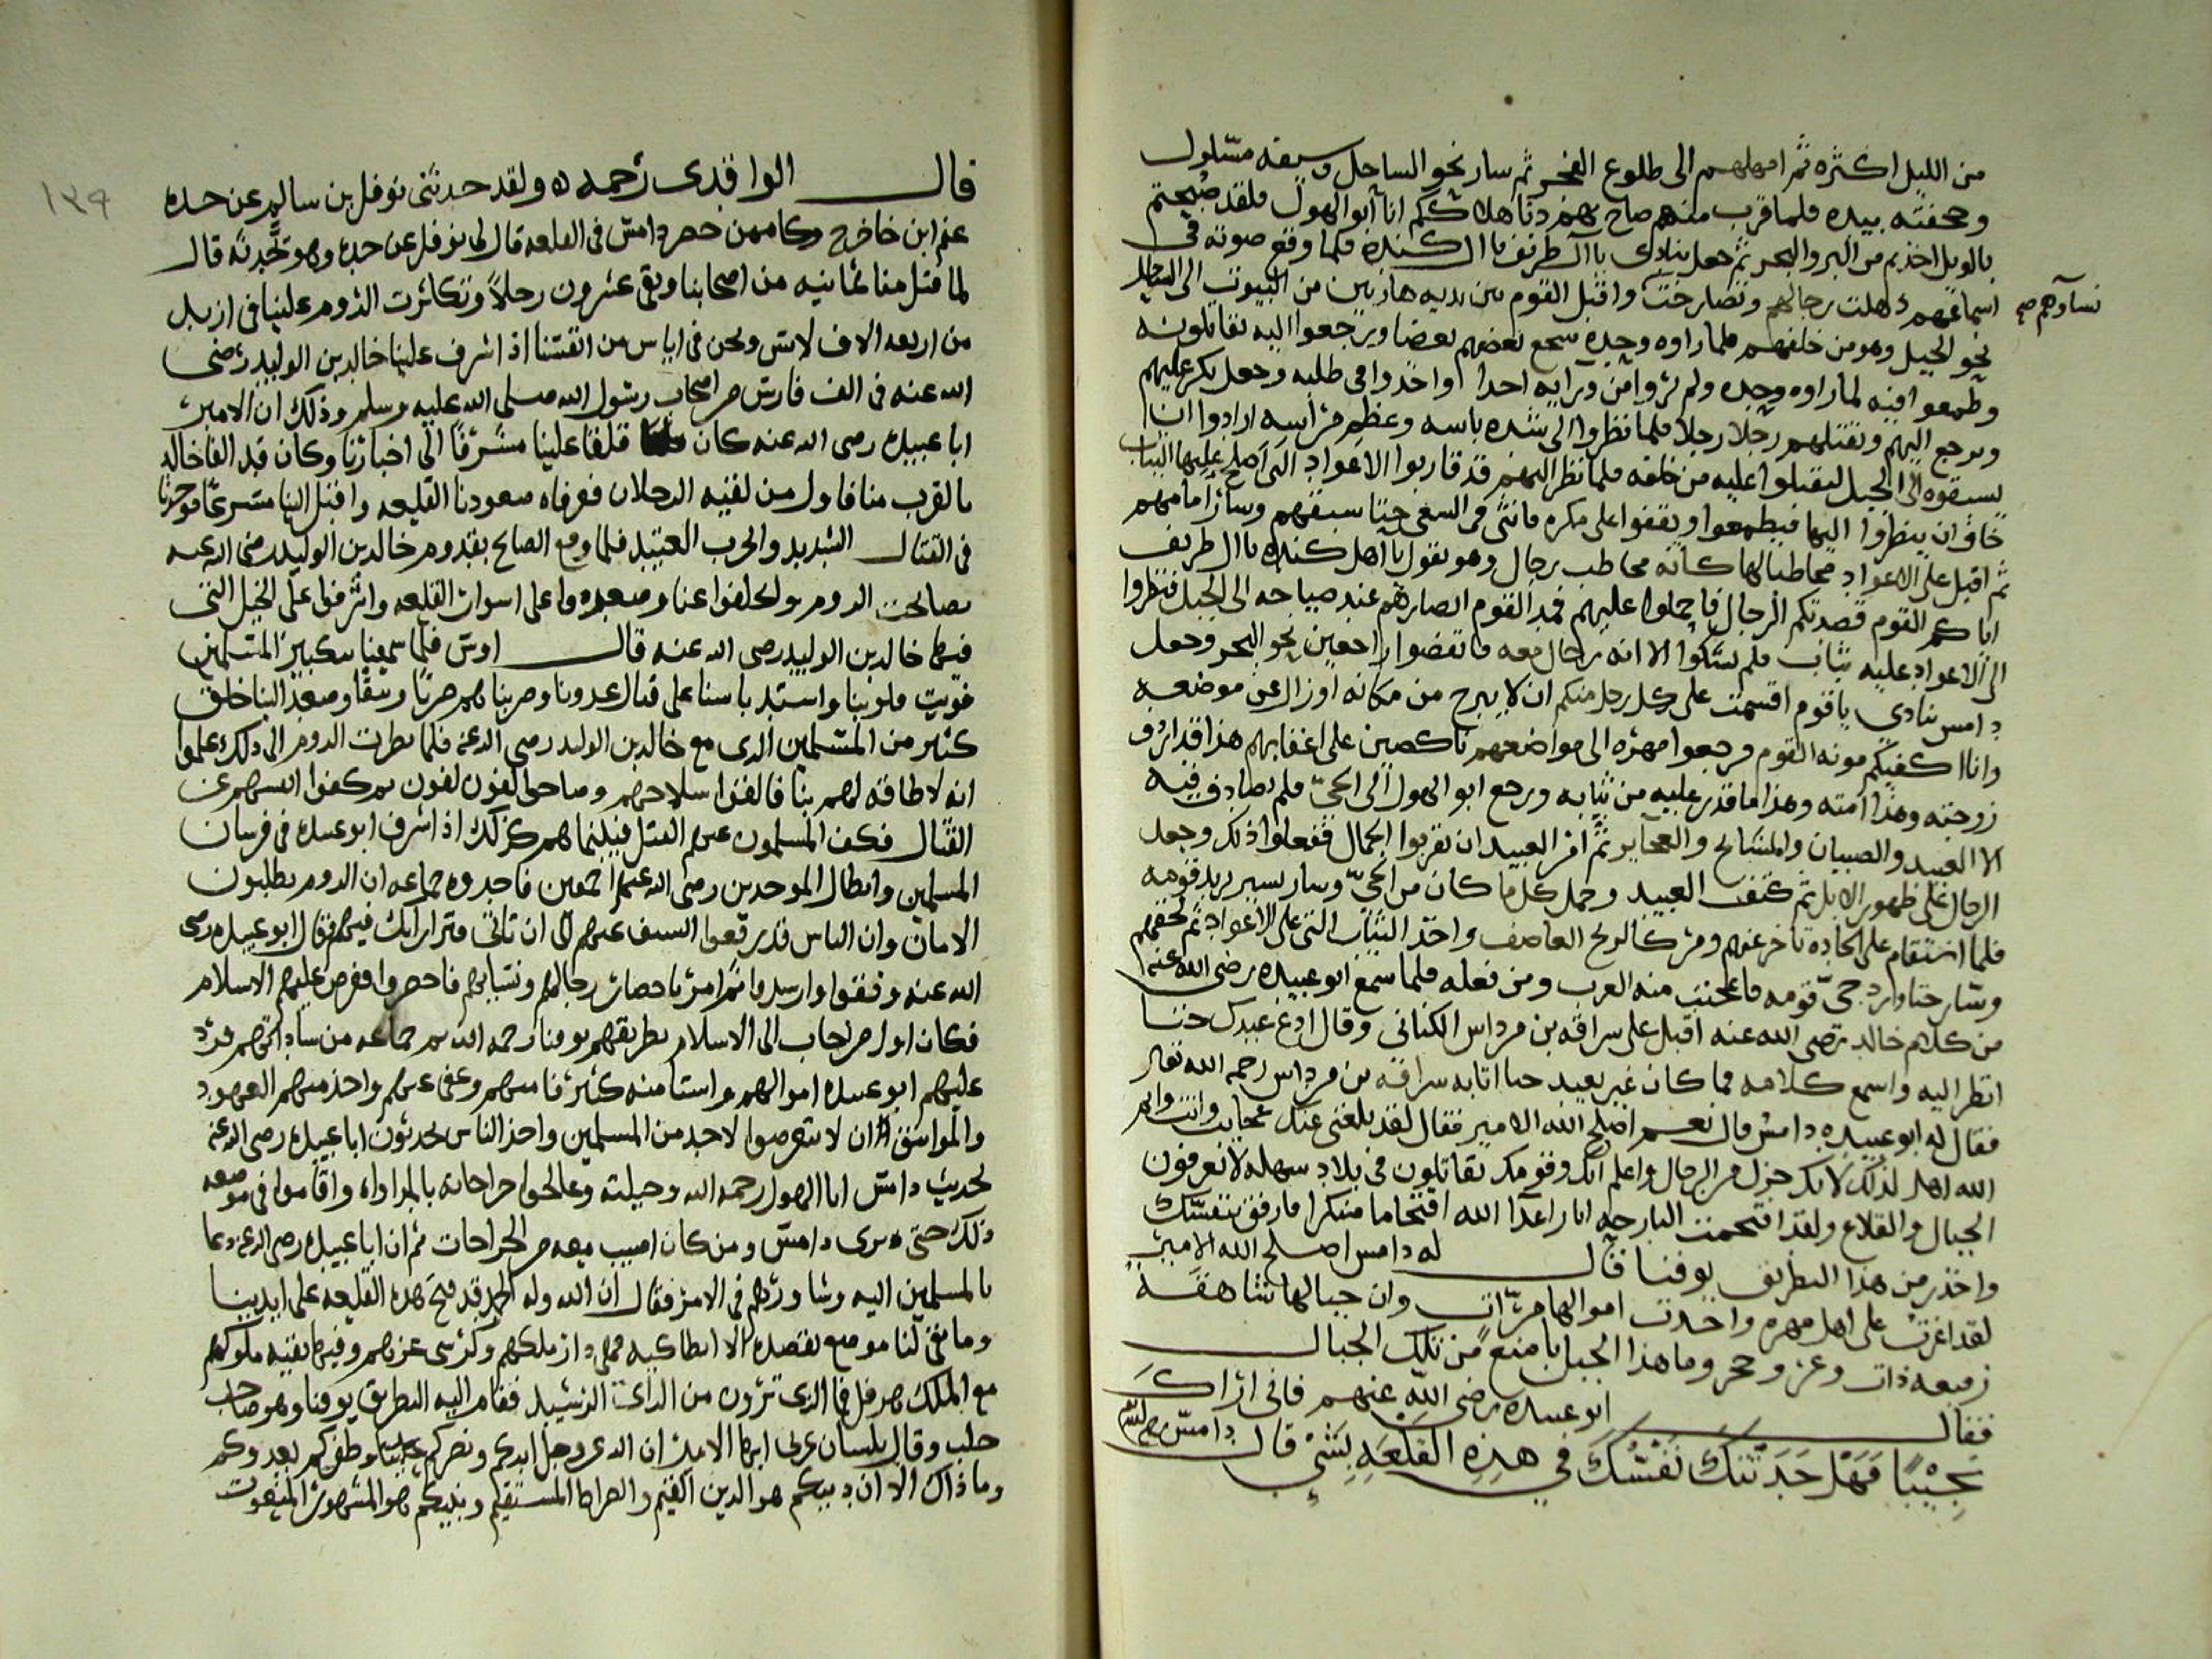 من الليل اكثره ثم امهلهم الى طلوع الفجر ثم سار نحو الساحل وسيفه مسلول
وحجفته بيده فلما قرب منهم صاح بهم دنا هلاككم انا ابو الهول فلقد صبحتم
بالويل اخذتم من البر والبحر ثم جعل ينادى يا ال طريف يا ال كندة فلما وقع صوته فى
اسماعهم ذهلت رجالهم وتصارخت واقبل القوم بين يديه هاربين من البيوت الى الساحل
نساوهم صح
نحو الجبل وهو من خلفهم فلما راوه وحده شجع بعضهم بعضا ويرجعوا اليه يقاتلونه
وطمعوا فيه لما راوه وحده ولم يروا من ورايه احدا واخذوا فى طلبه وجعل يكر عليهم
ويرجع اليهم ويقتلهم رجلا رجلا فلما نظروا الى شدة باسه وعظم مراسه ارادوا ان
يسبقوه الى الجبل ليقبلوا عليه من خلفه فلما نظر اليهم قد قاربوا الاعواد التى اصلح عليها الثياب
خاف ان ينظروا اليها فيطمعوا ويقفوا على مكره فانثنى فى السعى حتا سبقهم وسار امامهم
ثم اقبل على الاعواد مخاطبا لها كانه مخاطب رجال وهو يقول يا اهل كندة يا ال طريف
اياكم القوم قصدتكم الرجال فاحملوا عليهم فمد القوم ابصارهم عند صياحه الى الجبل فنظروا
الى الاعواد عليه ثياب فلم يشكوا الا انه رجال معه فانفضوا راجعين نحو البحر وجعل
دامس ينادى يا قوم اقسمت على كل رجل منكم ان لا يبرح من مكانه او زال عن موضعه
وانا اكفيكم مونه القوم فرجعوا مهره الى مواضعهم ناكصين على اعقابهم هذا قد اردف
زوجته وهذا امته وهذا ما قدر عليه من ثيابه ورجع ابو الهول الى الحى فلم يصادف فيه
الا العبيد والصبيان والمشايخ والعجايز ثم امر العبيد ان يقربوا الجمال ففعلوا ذلك وجعل
الرجال على ظهور الابل ثم كتف العبيد وحمل كل ما كان من الحى وسار يسير يريد قومه
فلما استقام على الجاده تاخر عنهم ومر كالريح العاصف واخذ الثياب التى على الاعواد ثم لحقهم
وسار حتا وارد حى قومه فاعجبت منه العرب ومن فعله فلما سمع ابو عبيده رضى الله عنه
من كلام خالد رضى الله عنه اقبل على سراقه بن مرداس الكنانى وقال ادع عبدك حتا
انظر اليه واسمع كلامه فما كان غير بعيد حتا اتا به سراقه بن مرداس رحمه الله تعال
فقال له ابو عبيده دامس قال نعم اصلح الله الامير فقال لقد بلغنى عنك عجايب وانت والله
الله اهل لذلك لانك جزل من الرجال واعلم انك وقومك تقاتلون فى بلاد سهله لا تعرفون
الجبال والقلاع ولقد اقتحمت البارحه اثار اعدا الله اقتحاما منكرا فارفق بنفسك
واحذر من هذا البطريق يوقنا قال له دامس اصلح الله الامير
لقد اغرت على اهل مهره واخذت اموالها مرات وان جبالها شاهقه
رفيعه ذات وعر وحجر وما هذا الجبل بامنع من تلك الجبال
فقال ابو عبيده رضى الله عنهم فانى اراك
نجيبا فهل حدثتك نفسك فى هذه القلعه بشى قال دامس
١٣٩
قال الواقدى رحمه الله ولقد حدثنى نوفل بن سالم عن جده
وكان ممن حصر دامس فى القلعه قال لى نوفل عن جده وهو يحدثه قال
لما قتل منا ثمانيه من اصحابنا وبقى عشرون رجلا وتكاثرت الروم علينا فى ازيد
من اربعه الاف لابس ونحن فى اياس من انفسنا اذ اشرف علينا خالد بن الوليد رضى
الله عنه فى الف فارس من اصحاب رسول الله صلى الله عليه وسلم وذلك ان الامير
ابا عبيده رضى الله عنه كان قلقا علينا متشوقا الى اخبارنا وكان قد القا خالد
بالقرب منا فاول من لقيه الرجلان فعرفاه صعودنا القلعه واقبل الينا مسرعا فوجدنا
فى القتال الشديد والحرب العتيد فلما وقع الصايح بقدوم خالد بن الوليد رضى الله عنه
تصايحت الروم وانحلفوا عنا وصعدوا على اسوار القلعه واشرفوا على الخيل التى
فيها خالد بن الوليد رضى الله عنه قال اوس فلما سمعنا تكبير المسلمين
قويت قلوبنا واشتد باسنا على قتال عدونا وضربناهم ضربا وصعد الينا خلق
كثير من المسلمين الذى مع خالد بن الوليد رضى الله عنه فلما نظرت الروم الى ذلك علموا
انه لا طاقه لهم بنا فالقوا سلاحهم وصاحوا لفون لفون ثم كفوا انفسهم عن
القتال فكف المسلمون عنهم القتل فبينما هم كذلك اذ اشرف ابو عبيده فى فرسان
المسلمين وابطال الموحدين رضى الله عنهم اجمعين فاخبروه جماعه ان الروم يطلبون
الامان وان الناس قد رفعوا السيف عنهم الى ان تاتى وترا رايك فيهم فقال ابو عبيده رضى
الله عنه وفقوا وارشدوا ثم امر باحضار رجالهم ونسايهم فاحضروا فعرض عليهم الاسلام
فكان اول من اجاب الى الاسلام بطريقهم يوقنا رحمه الله ثم جماعه من ساداتهم فرد
عليهم ابو عبيده اموالهم واستامنه كثير فامنهم وعفى عنهم واخذ منهم العهود
والمواثيق ان لا يتعرضوا لاحد من المسلمين واخذ الناس يحدثون ابا عبيده رضى الله عنه
بحديث دامس ابا الهول رحمه الله وحيلته وعالجوا جراحاته بالمداواه واقاموا فى موضعه
ذلك حتى برى دامس ومن كان اصيب معه من الجراحات ثم ان ابا عبيده رضى الله عنه دعا
بالمسلمين اليه وشاورهم فى الامر فقال ان الله وله الحمد قد فتح هذه القلعه على ايدينا
وما بقى لنا موضع نقصده الا انطاكيه فهى دار ملكهم وكرسى عزهم وفيها بقيه ملوكهم
مع الملك هرقل فما الذى ترون من الراى الرشيد فقام اليه البطريق يوقنا وهو صاحب
حلب وقال بلسان عربى ايها الامير ان الله عز وجل ايدكم ونصركم وظفركم بعدوكم
وما ذاك الا ان دينكم هو الدين القيم والصراط المستقيم ونبيكم هو المشهور المنعوت